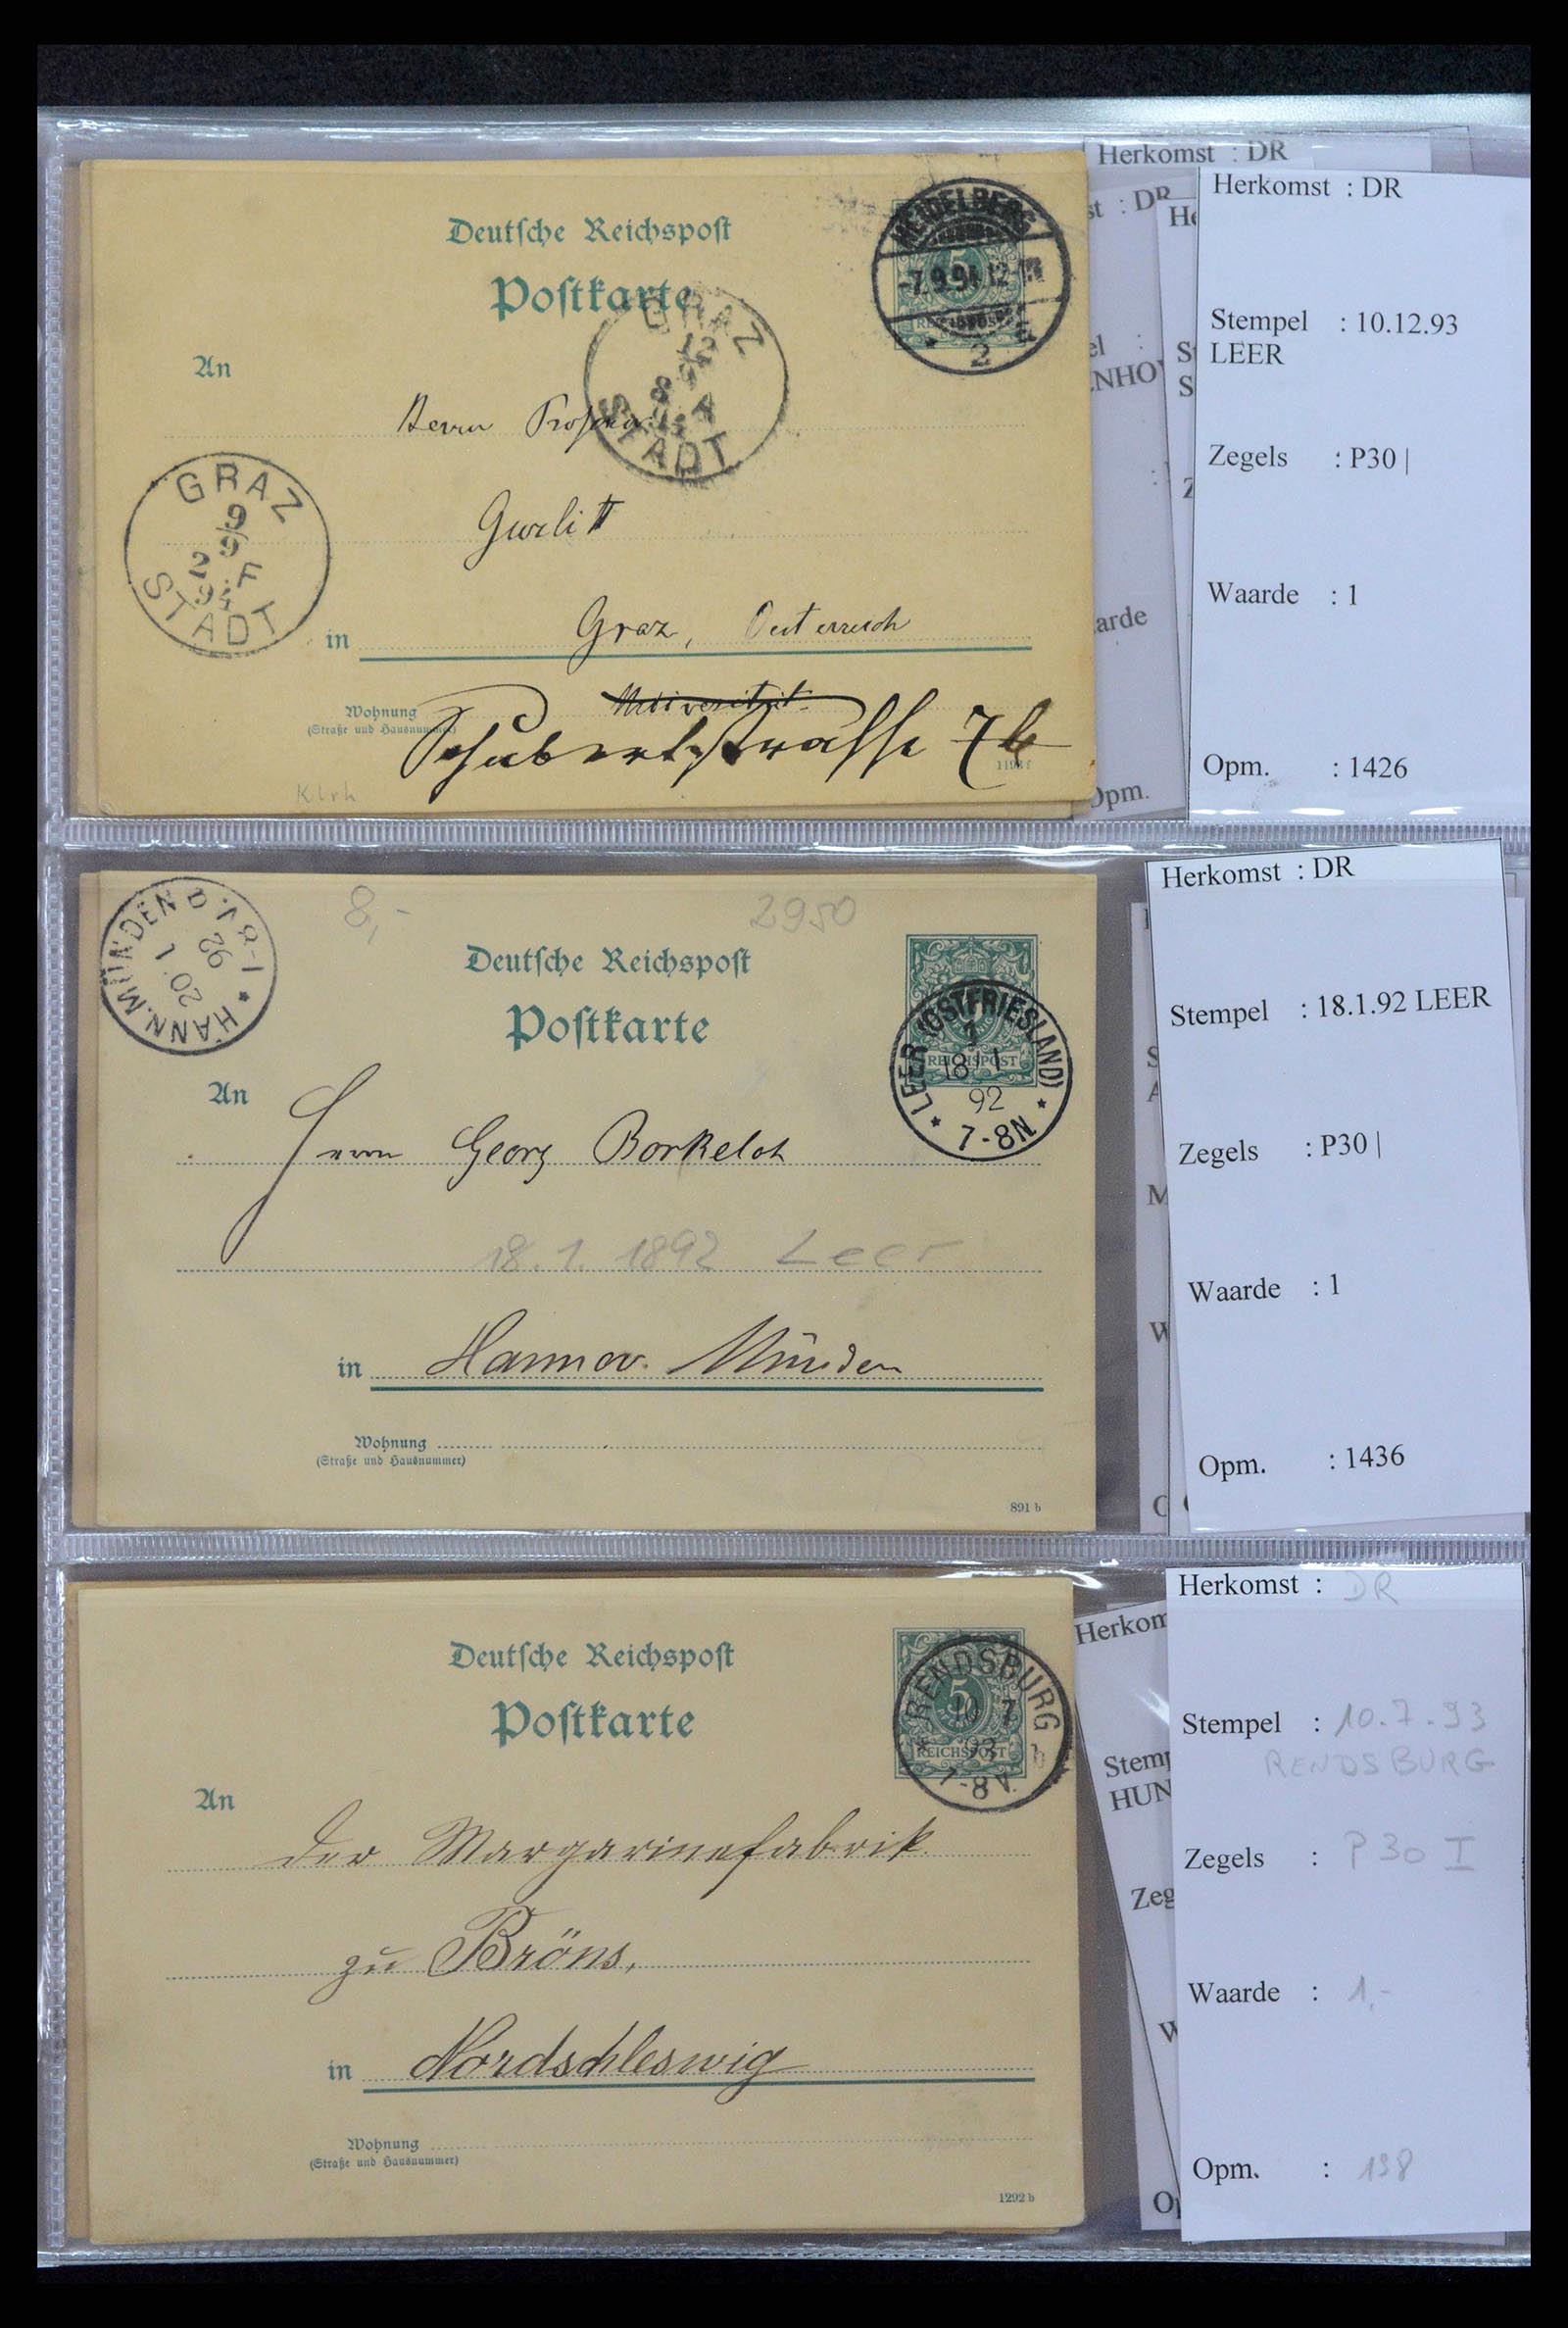 Herkomst : DR
st : DR
He
Herkomst : DR
Deutsche Reichspost
Postkarte
HEIDELBERG
-7.9.94.12-
2
5
REICHSPOST
GRAZ
STADT
An
Herrn Professor
GRAZ
9
9
2 F
94
STADT
Gurlitt
in Graz, Oesterreich
Universität
Wohnung
(Straße und Hausnummer)
Schubertstrasse 7b
Klrh
el :
ENHO
Stempel : 10.12.93
LEER
Zegels : P30 |
arde
Waarde : 1
Opm.
Opm. : 1426
HANN. MÜNDEN
20. 1
92
8,-
2950
Deutsche Reichspost
Postkarte
REICHSPOST
LEER (OSTFRIESLAND)
18 1
92
7-8N
An
Herrn Georg Borkeloh
18.1.1892 Leer
in Hannov. Münden
Wohnung
(Straße und Hausnummer)
891 b
Herkomst : DR
Stempel : 18.1.92 LEER
Zegels : P30 |
Waarde : 1
Opm. : 1436
Deutsche Reichspost
Postkarte
RENDSBURG
10 7
93
7-8V.
5
REICHSPOST
An
der Margarinefabrik
zu Bröns,
in Nordschleswig
Wohnung
(Straße und Hausnummer)
1292 b
Herkom
Stem
HUN
Zeg
Herkomst : DR
Stempel : 10.7.93
RENDSBURG
Zegels : P30 I
Waarde : 1,-
Opm. : 198